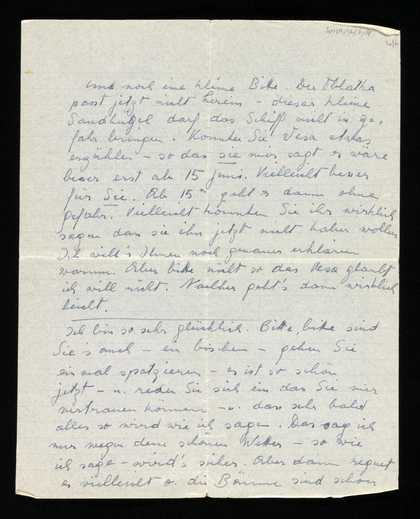 und noch eine kleine Bitte. Der
passt jetzt nicht herein - dieser kleine
Sandhügel darf das Schiff nicht in ge-
fahr bringen. Könnten Sie Vera etwas
erzählen - so das sie mir sagt es wäre
besser erst ab 15 Juni. Vielleicht besser
für Sie. Ab 15ten geht es dann ohne
gefahr. Vielleicht könnten Sie ihr wirklich
sagen das sie ihn jetzt nicht haben wollen
Ich will's Ihnen noch genauer erklären
warum. Aber bitte nicht so das Vera glaubt
ich will nicht. Nachher geht's dann wirklich
leicht.
Ich bin so sehr glücklich. Bitte, bitte sind
Sie's auch - ein bischen - gehen Sie
einmal spatzieren - es ist so schön
jetzt - u. reden Sie sich ein das Sie mir
vertrauen können - u. das sehr bald
alles so wird wie ich sage. Das sag ich
nur wegen dem schönen Wetter - so wie
ich sage - wird's sicher. Aber dann regnet
es vielleicht o. die Bäume sind schon